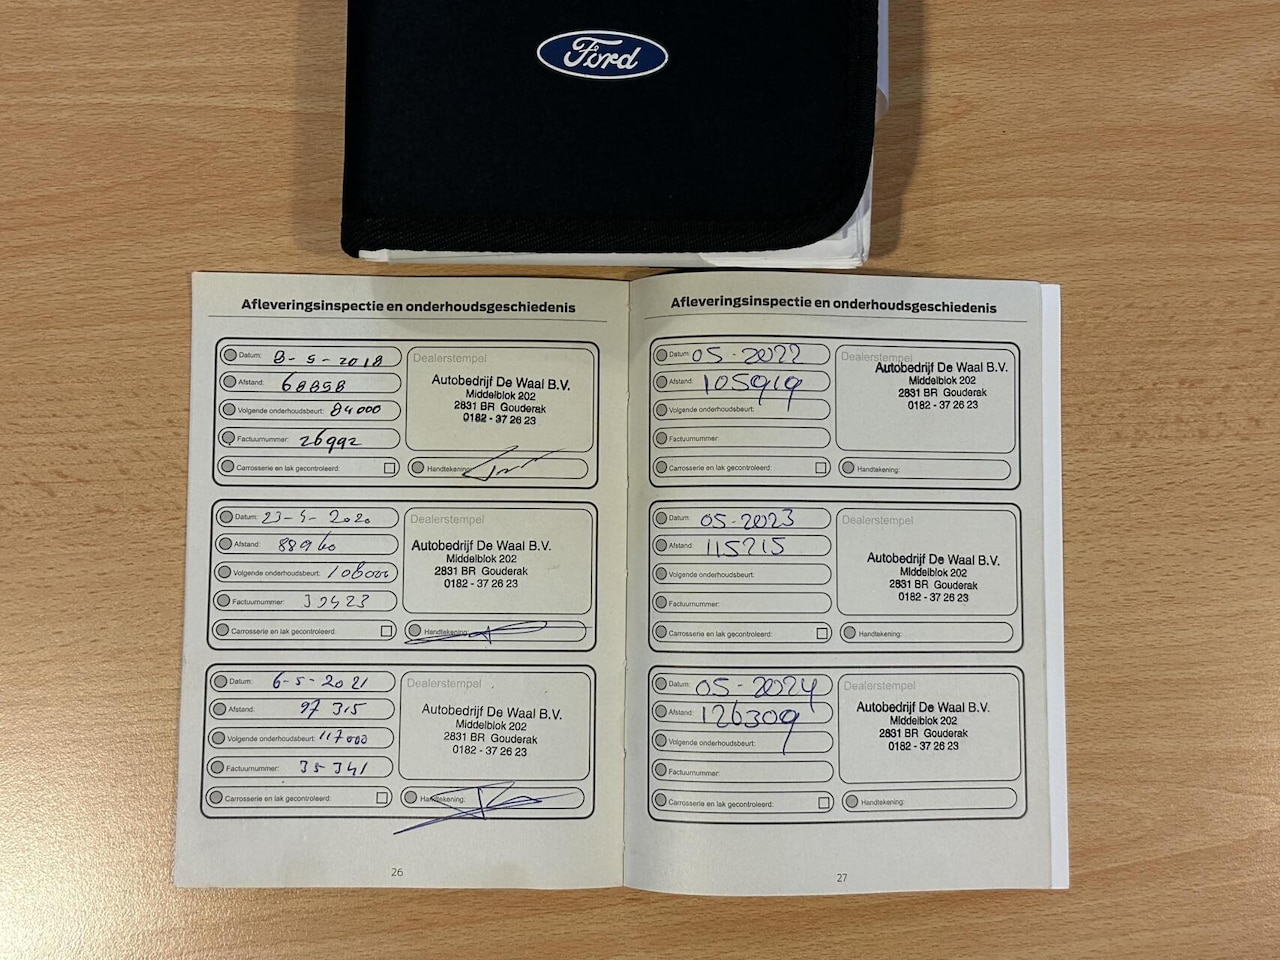 Ford
Afleveringsinspectie en onderhoudsgeschiedenis
Datum: 8-5-2018
Afstand: 68858
Volgende onderhoudsbeurt: 84000
Factuurnummer: 26992
Carrosserie en lak gecontroleerd:
Dealerstempel
Autobedrijf De Waal B.V.
Middelblok 202
2831 BR Gouderak
0182 - 37 26 23
Handtekening:
Datum: 23-5-2020
Afstand: 88960
Volgende onderhoudsbeurt: 108000
Factuurnummer:
Carrosserie en lak gecontroleerd:
Dealerstempel
Autobedrijf De Waal B.V.
Middelblok 202
2831 BR Gouderak
0182 - 37 26 23
Handtekening:
Datum: 6-5-2021
Afstand: 97315
Volgende onderhoudsbeurt: 117000
Factuurnummer: 35341
Carrosserie en lak gecontroleerd:
Dealerstempel
Autobedrijf De Waal B.V.
Middelblok 202
2831 BR Gouderak
0182 - 37 26 23
Handtekening:
26
Afleveringsinspectie en onderhoudsgeschiedenis
Datum: 05-2022
Afstand: 105919
Volgende onderhoudsbeurt:
Factuurnummer:
Carrosserie en lak gecontroleerd:
Dealerstempel
Autobedrijf De Waal B.V.
Middelblok 202
2831 BR Gouderak
0182 - 37 26 23
Handtekening:
Datum: 05-2023
Afstand: 115215
Volgende onderhoudsbeurt:
Factuurnummer:
Carrosserie en lak gecontroleerd:
Dealerstempel
Autobedrijf De Waal B.V.
Middelblok 202
2831 BR Gouderak
0182 - 37 26 23
Handtekening:
Datum: 05-2024
Afstand: 126309
Volgende onderhoudsbeurt:
Factuurnummer:
Carrosserie en lak gecontroleerd:
Dealerstempel
Autobedrijf De Waal B.V.
Middelblok 202
2831 BR Gouderak
0182 - 37 26 23
Handtekening:
27